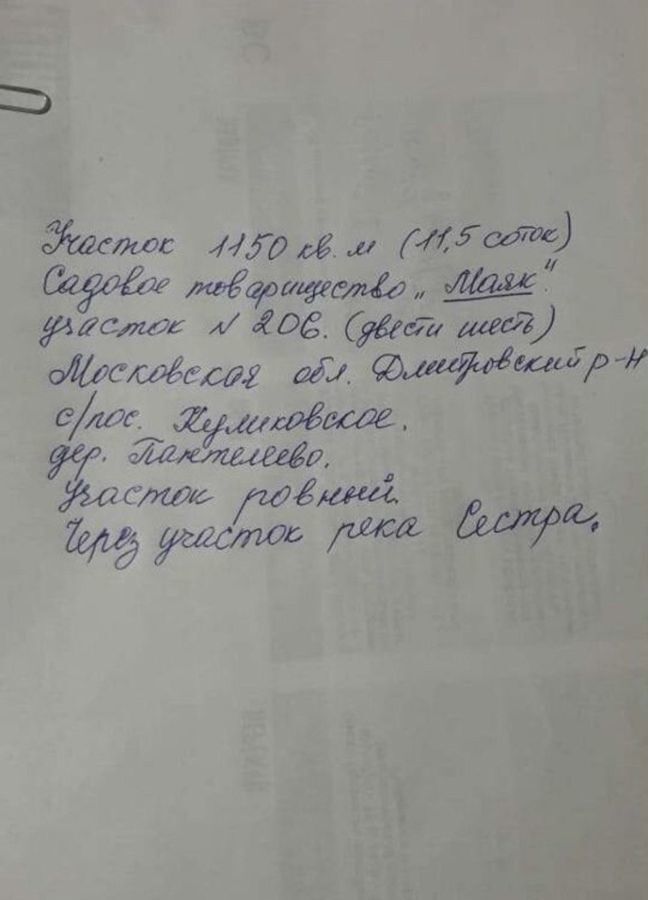 Участок 1150 кв. м (11,5 соток)
Садовое товарищество „Маяк".
участок N 206. (двести шесть)
Московская обл. Дмитровский р-н
с/пос. Куликовское.
дер. Пантелеево.
Участок ровный.
Через участок река Сестра.